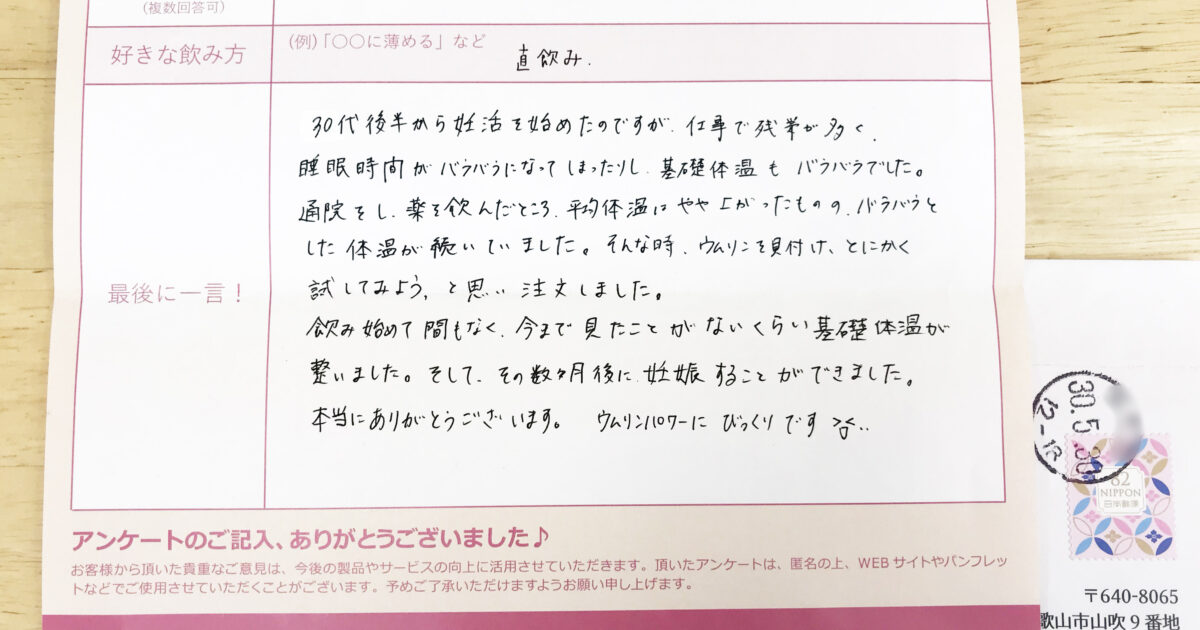 (複数回答可)
好きな飲み方
(例)「○○に薄める」など
直飲み.
最後に一言！
30代後半から妊活を始めたのですが、仕事で残業が多く、
睡眠時間がバラバラになってしまったりし、基礎体温もバラバラでした。
通院をし、薬を飲んだところ、平均体温はやや上がったものの、バラバラと
した体温が続いていました。そんな時、ウムリンを見付け、とにかく
試してみよう、と思い注文しました。
飲み始めて間もなく、今まで見たことがないくらい基礎体温が
整いました。そして、その数ヶ月後に妊娠することができました。
本当にありがとうございます。 ウムリンパワーにびっくりです
アンケートのご記入、ありがとうございました♪
お客様から頂いた貴重なご意見は、今後の製品やサービスの向上に活用させていただきます。頂いたアンケートは、匿名の上、WEBサイトやパンフレッ
トなどでご使用させていただくことがございます。予めご了承いただけますようお願い申し上げます。
30.5.30
12-18
82
NIPPON
日本郵便
〒640-8065
歌山市山吹9番地